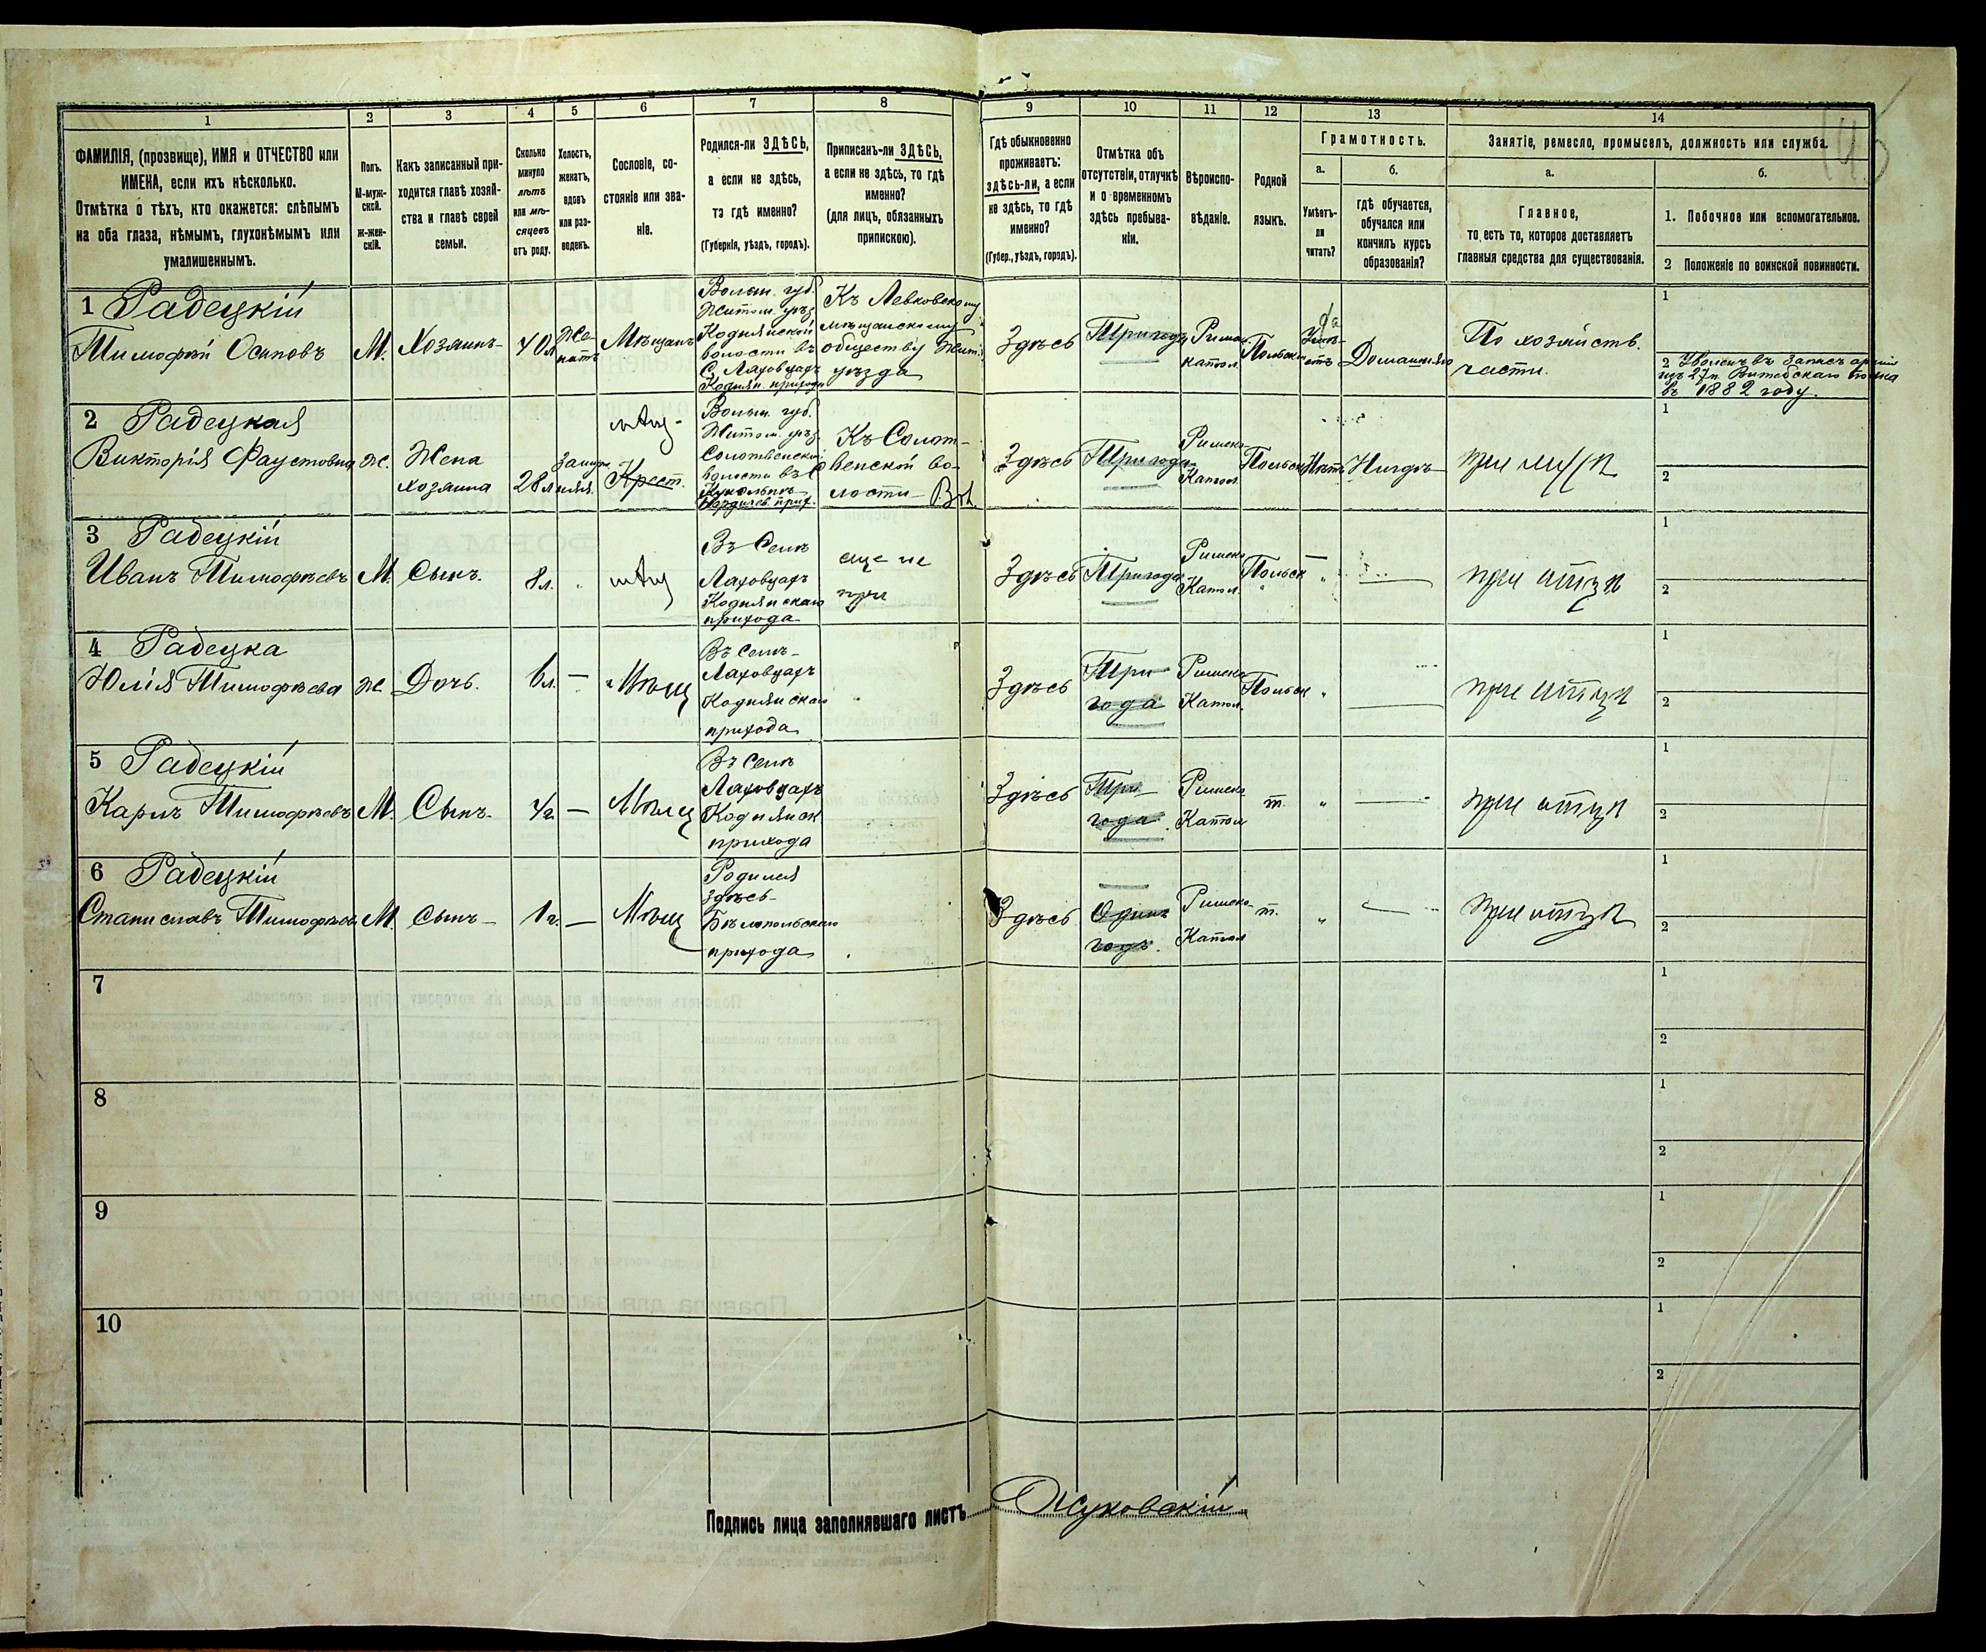 1
2
3
4
5
6
7
8
9
10
11
12
13
14
ФАМИЛІЯ, (прозвище), ИМЯ и ОТЧЕСТВО или
ИМЕНА, если ихъ нѣсколько.
Отмѣтка о тѣхъ, кто окажется: слѣпымъ
на оба глаза, нѣмымъ, глухонѣмымъ или
умалишеннымъ.
Полъ.
М-муж-
ской.
ж-жен-
скій.
Какъ записанный при-
ходится главѣ хозяй-
ства и главѣ своей
семьи.
Сколько
минуло
лѣтъ
или мѣ-
сяцевъ
отъ роду.
Холостъ,
женатъ,
вдовъ
или раз-
веденъ.
Сословіе, со-
стояніе или зва-
ніе.
Родился-ли ЗДѢСЬ,
а если не здѣсь,
то гдѣ именно?
(Губернія, уѣздъ, городъ).
Приписанъ-ли ЗДѢСЬ,
а если не здѣсь, то гдѣ
именно?
(для лицъ, обязанныхъ
припискою).
Гдѣ обыкновенно
проживаетъ:
здѣсь-ли, а если
не здѣсь, то гдѣ
именно?
(Губер., уѣздъ, городъ).
Отмѣтка объ
отсутствіи, отлучкѣ
и о временномъ
здѣсь пребыва-
ніи.
Вѣроиспо-
вѣданіе.
Родной
языкъ.
Грамотность.
а.
Умѣетъ-
ли
читать?
б.
гдѣ обучается,
обучался или
кончилъ курсъ
образованія?
Занятіе, ремесло, промыселъ, должность или служба.
а.
Главное,
то есть то, которое доставляетъ
главныя средства для существованія.
б.
1. Побочное или вспомогательное.
2 Положеніе по воинской повинности.
1 Радецкій
Тимофѣй Осиповъ
М.
Хозяинъ
40 л
Же-
натъ
Мѣщанъ
Волын. губ.
Житом. уѣз.
Коднянской
волости въ
с. Ляховцахъ
Коднян. прихода
Къ Левковскому
мѣщанскому
обществу Жит.
уѣзда
Здѣсь
Три года
Римск.
катол.
Польск
да
Домашняго
По хозяйств.
части.
1
2 Уволенъ въ запасъ арміи
изъ 27 п. Витебскаго полка
въ 1882 году.
2 Радецкая
Викторія Фаустовна
ж.
Жена
хозяина
28 л
замуж
няя
мѣщ-
Крест.
Волын. губ.
Житом. уѣз.
Солотвенской
волости въ с
Бердичев. прих.
Къ Солот-
венской во-
лости Вол.
Здѣсь
Три года
Римско
Катол
Польск
Нѣтъ
Нигдѣ
при мужѣ
1
2
3 Радецкій
Иванъ Тимофѣевъ
М.
Сынъ.
8 л.
мѣщ
Въ Селѣ
Ляховцахъ
Коднянскаго
прихода
еще не
при
Здѣсь
Три года
Римско
Катол.
Польск
"
при отцѣ
1
2
4 Радецка
Юлія Тимофѣева
ж.
Дочь.
6 л.
—
Мѣщ
Въ Селѣ
Ляховцахъ
Коднянскаго
прихода
Здѣсь
Три
года
Римско
Катол.
Польск
"
при отцѣ
1
2
5 Радецкій
Карлъ Тимофѣевъ
М.
Сынъ.
4 г.
—
Мѣщ
Въ Селѣ
Ляховцахъ
Коднянск
прихода
Здѣсь
Три
года.
Римско
Катол
т.
"
при отцѣ
1
2
6 Радецкій
Станиславъ Тимофѣевъ
М.
Сынъ
1 г.
—
Мѣщ
Родился
здѣсь
Бѣлопольскаго
прихода
Здѣсь
Одинъ
годъ.
Римско
Катол
т.
"
при отцѣ
1
2
7
1
2
8
1
2
9
1
2
10
1
2
Подпись лица заполнявшаго листъ Жуковскій